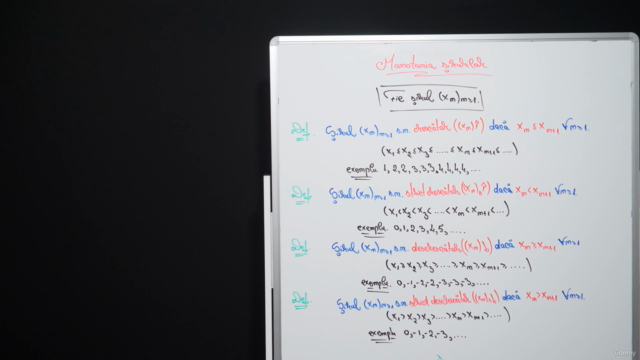 Monotonia șirurilor
Fie șirul (xₙ)ₙ≥1.
Def. Șirul (xₙ)ₙ≥1 s.n. crescător ((xₙ)↗) dacă xₙ ≤ xₙ₊₁ ∀n≥1.
(x₁≤x₂≤x₃≤....≤xₙ≤xₙ₊₁≤....)
exemplu 1, 2, 2, 3, 3, 3, 4, 4, 4, 4, ....
Def. Șirul (xₙ)ₙ≥1 s.n. strict crescător dacă xₙ < xₙ₊₁ ∀n≥1.
(x₁<x₂<x₃<....<xₙ<xₙ₊₁<....)
exemplu 0, 1, 2, 3, 4, 5, ....
Def. Șirul (xₙ)ₙ≥1 s.n. descrescător ((xₙ)↘) dacă xₙ ≥ xₙ₊₁ ∀n≥1
(x₁≥x₂≥x₃≥....≥xₙ≥xₙ₊₁≥....)
exemplu 0, -1, -2, -2, -3, -3, -3, ....
Def. Șirul (xₙ)ₙ≥1 s.n. strict descrescător dacă xₙ > xₙ₊₁ ∀n≥1.
(x₁>x₂>x₃>....>xₙ>xₙ₊₁>....)
exemplu 0, -1, -2, -3, ....
Udemy